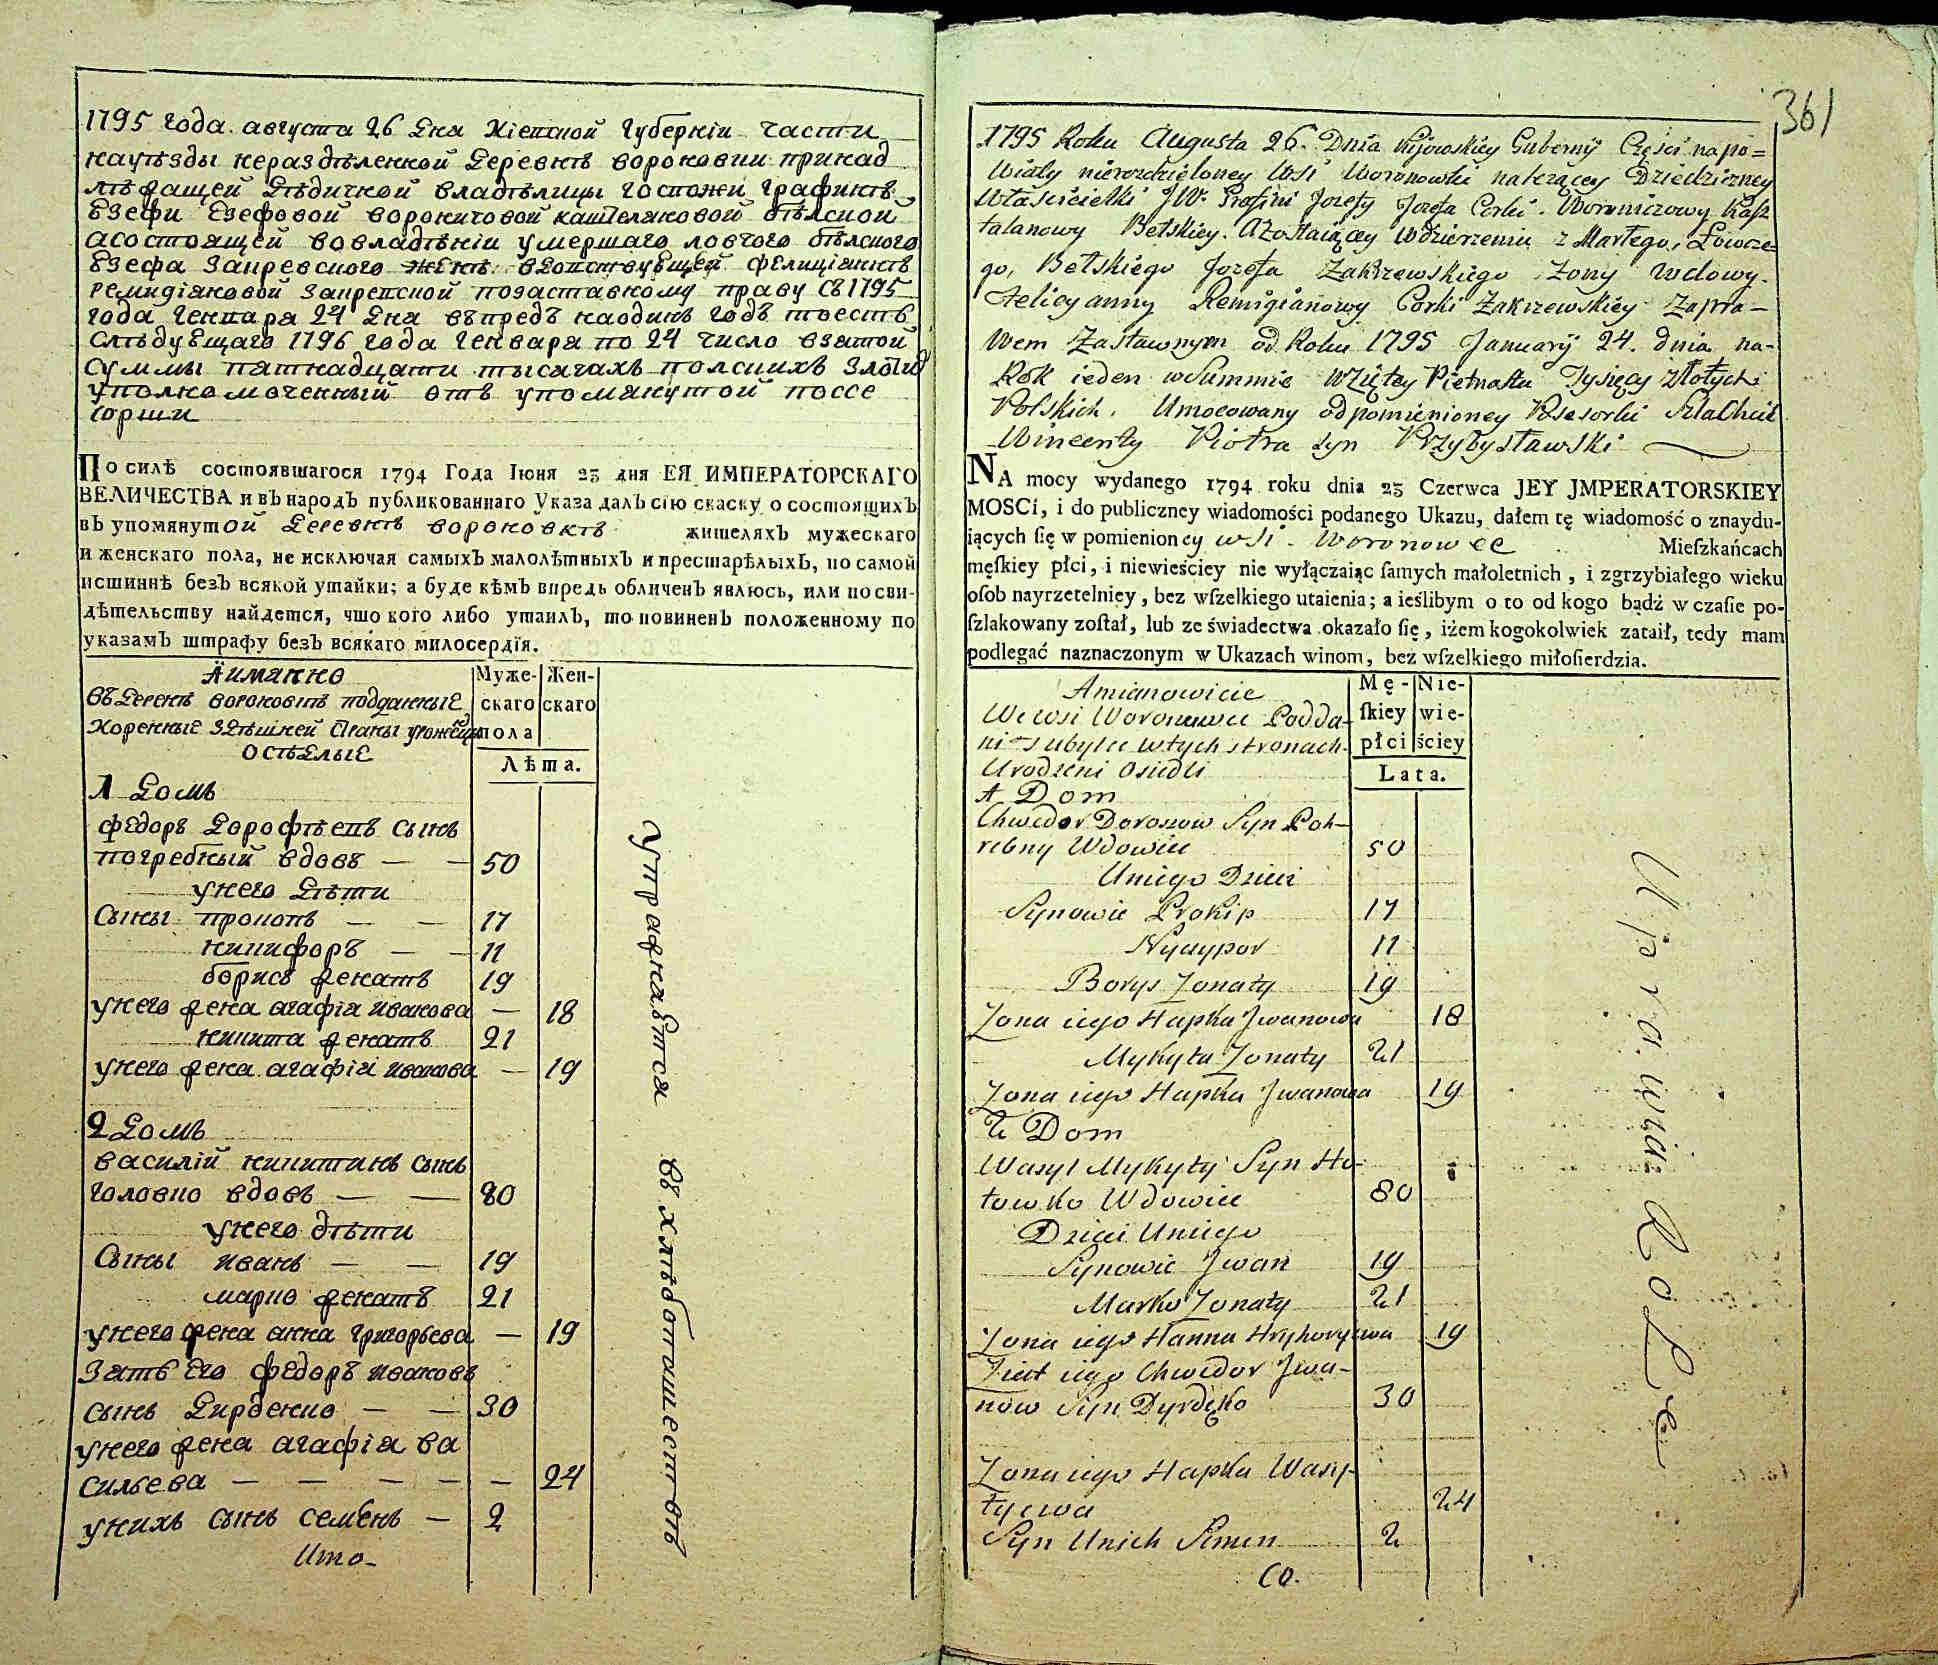 1795 года августа 26 дня Кіевской губерніи части
науѣзды нераздѣленной деревнѣ вороновки принад
лѣжащей дѣдичной владѣлицы госпожи графинѣ
Езефи Езефовой вороничовой каштеляновой бѣлской
асостоящей вовладѣніи умершаго ловчого бѣлского
Езефа Закревского женѣ вдовствуещей фелиціяннѣ
ремидіяновой Закревской позаставному праву съ 1795
года генвара 24 дня въпредъ наодинъ годъ тоесть
слѣдуещаго 1796 года генвара по 24 число взятой
суммы пятнадцати тысачахъ полскихъ злотых
уполномоченный отъ упомянутой поссе
сорки
По силѣ состоявшагося 1794 Года Іюня 23 дня ЕЯ ИМПЕРАТОРСКАГО
ВЕЛИЧЕСТВА и въ народъ публикованнаго Указа далъ сію скаску о состоящихъ
въ упомянутой деревнѣ вороновкѣ жителяхъ мужескаго
и женскаго пола, не исключая самыхъ малолѣтныхъ и престарѣлыхъ, по самой
истиннѣ безъ всякой утайки; а буде кѣмъ впредь обличенъ явлюсь, или по сви-
дѣтельству найдется, что кого либо утаилъ, то повиненъ положенному по
указамъ штрафу безъ всякаго милосердія.
Аимянно
въдеревнѣ вороновкѣ подданные
Коренные здѣшней страны уроженцы
осѣдлые
Муже- Жен-
скаго скаго
пола
Лѣта.
1 Домъ
федоръ Дорофѣевъ сынъ
погребный вдовъ — — 50
унего дѣти
Сыны прокопъ — — 17
никифоръ — — 11
борисъ женатъ 19
унего жена агафія иванова — 18
никита женатъ 21
унего жена агафія иванова — 19
2 Домъ
василій никитинъ сынъ
головко вдовъ — — 80
унего дѣти
Сыны иванъ — — 19
марко женатъ 21
унего жена анна григорьева — 19
Зять его федоръ ивановъ
сынъ Дирденко — — 30
унего жена агафія ва
сильева — — — — — 24
унихъ сынъ семенъ — 2
Ито-
Упражняются въ хлѣбопашествѣ
361
1795 Roku Augusta 26. Dnia Kijowskiey Guberny Części napo=
wiaty nierozdzieloney Wsi Woronowki należącey Dziedziczney
Właścicielki JW. Grafini Jozefy Jozefa Corki. Woroniczowy Kasz
talanowy Bełskiey. A zostaiącey wdzierzeniu z Martego, Łowcze-
go, Bełskiego Jozefa Zakrzewskiego Żony wdowy.
Felicyanny Remigianowy Corki Zakrzewskiey Zapra-
wem Zastawnym od Roku 1795 January 24. dnia na-
Rok ieden wSummie Wziętey Pietnastu Tysięcy Złotych
Polskich. Umocowany odpomienioney Possesorki Szlachcic
Wincenty Piotra syn Przybysławski
NA mocy wydanego 1794 roku dnia 23 Czerwca JEY JMPERATORSKIEY
MOSCi, i do publiczney wiadomości podanego Ukazu, dałem tę wiadomość o znaydu-
iących ſię w pomienioney wsi Woronowce Mieſzkańcach
męſkiey płci, i niewieściey nie wyłączaiąc ſamych małoletnich, i zgrzybiałego wieku
oſob nayrzetelniey, bez wſzelkiego utaienia; a ieślibym o to od kogo bądź w czaſie po-
ſzlakowany zoſtał, lub ze świadectwa okazało ſię, iżem kogokolwiek zataił, tedy mam
podlegać naznaczonym w Ukazach winom, bez wſzelkiego miłoſierdzia.
Amianowicie
We wsi Woronowce Podda-
ni zubyłu wtych stronach
Urodzeni osiedli
Mę- Nie-
ſkiey wie-
płci ściey
Lata.
1 Dom
Chwedor Doroszow Syn Poh-
rebny Wdowiec 50
Uniego Dzieci
Synowie Prokip 17
Nyczypor 11
Borys Zonaty 19
Zona iego Hapka Jwanowa 18
Mykyta Zonaty 21
Zona iego Hapka Jwanowa 19
2 Dom
Wasyl Mykyty Syn Ho-
łowko Wdowiec 80
Dzieci Uniego
Synowie Jwan 19
Marko Zonaty 21
Zona iego Hanna Hryhoryewa 19
Zięt iego Chwedor Jwa-
now Syn Dyrdęko 30
Zona iego Hapka Wasy-
łyewa 24
Syn Unich Semen 2
Co.
Uprawia Role